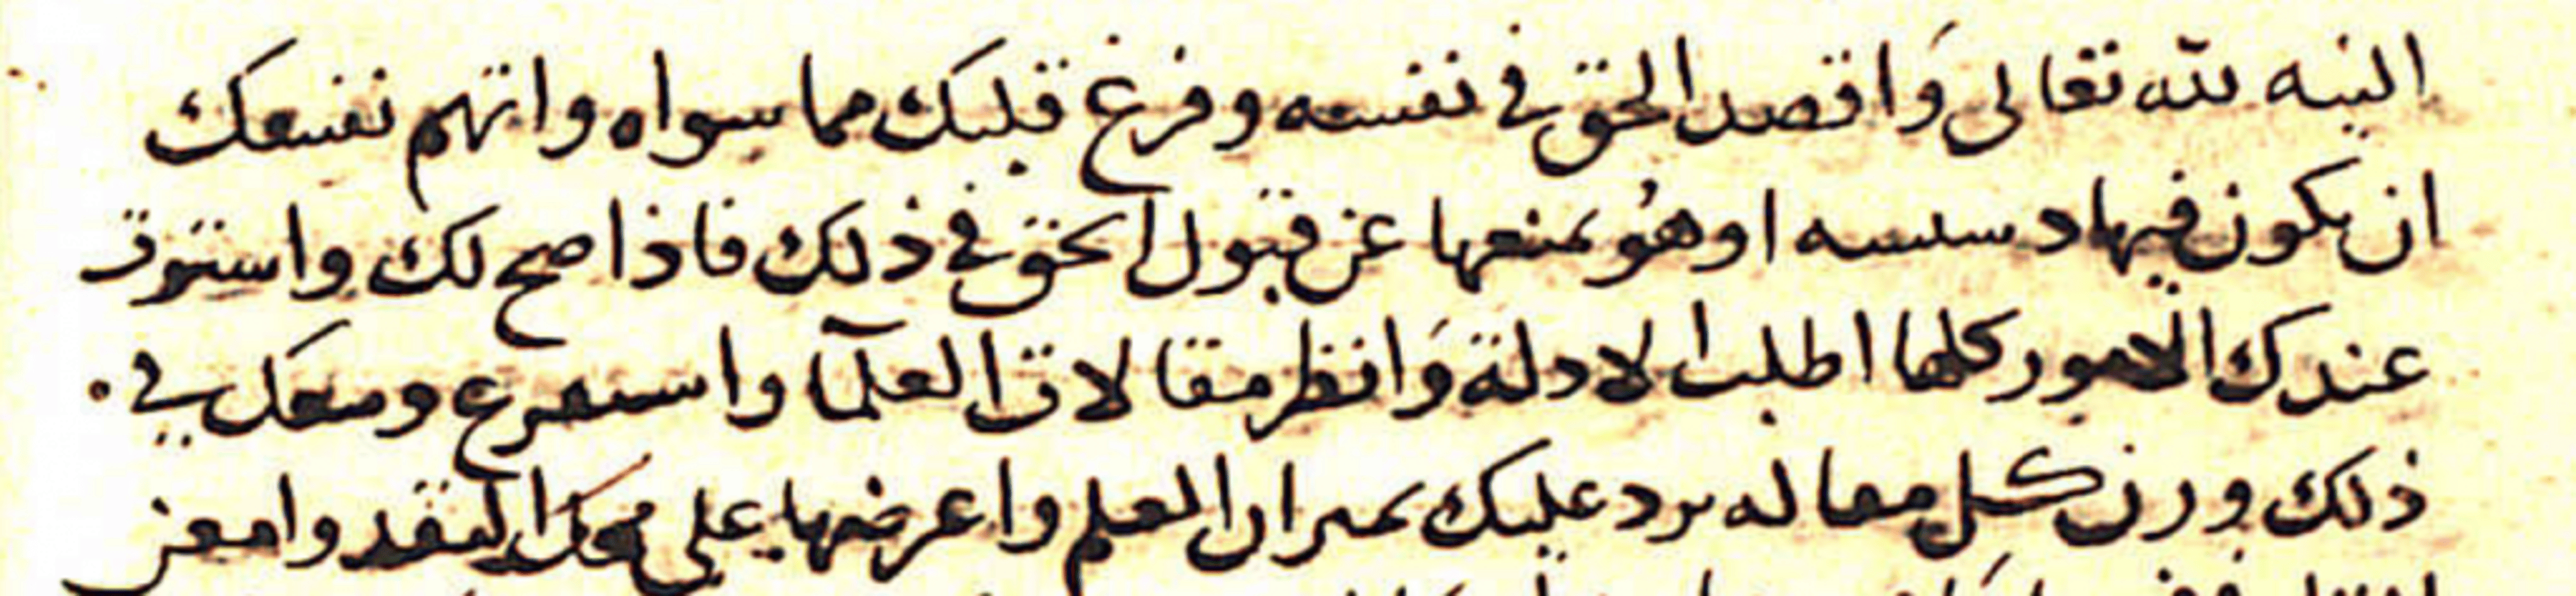 النيه لله تعالى وَاقصد الحق في نفسه وفرغ قلبك مما سواه واتهم نفسك
ان يكون فيها دسسه او هوُ يمنعها عن قبول الحق في ذلك فاذا صح لك واستوت
عندك الامور كلها اطلب الادلة وَانظر مقالات العلمآ واستفرغ وسعك في .
ذلك وزن كل مقاله يرد عليك بميزان العلم واعرضها على محك النقد وامعن